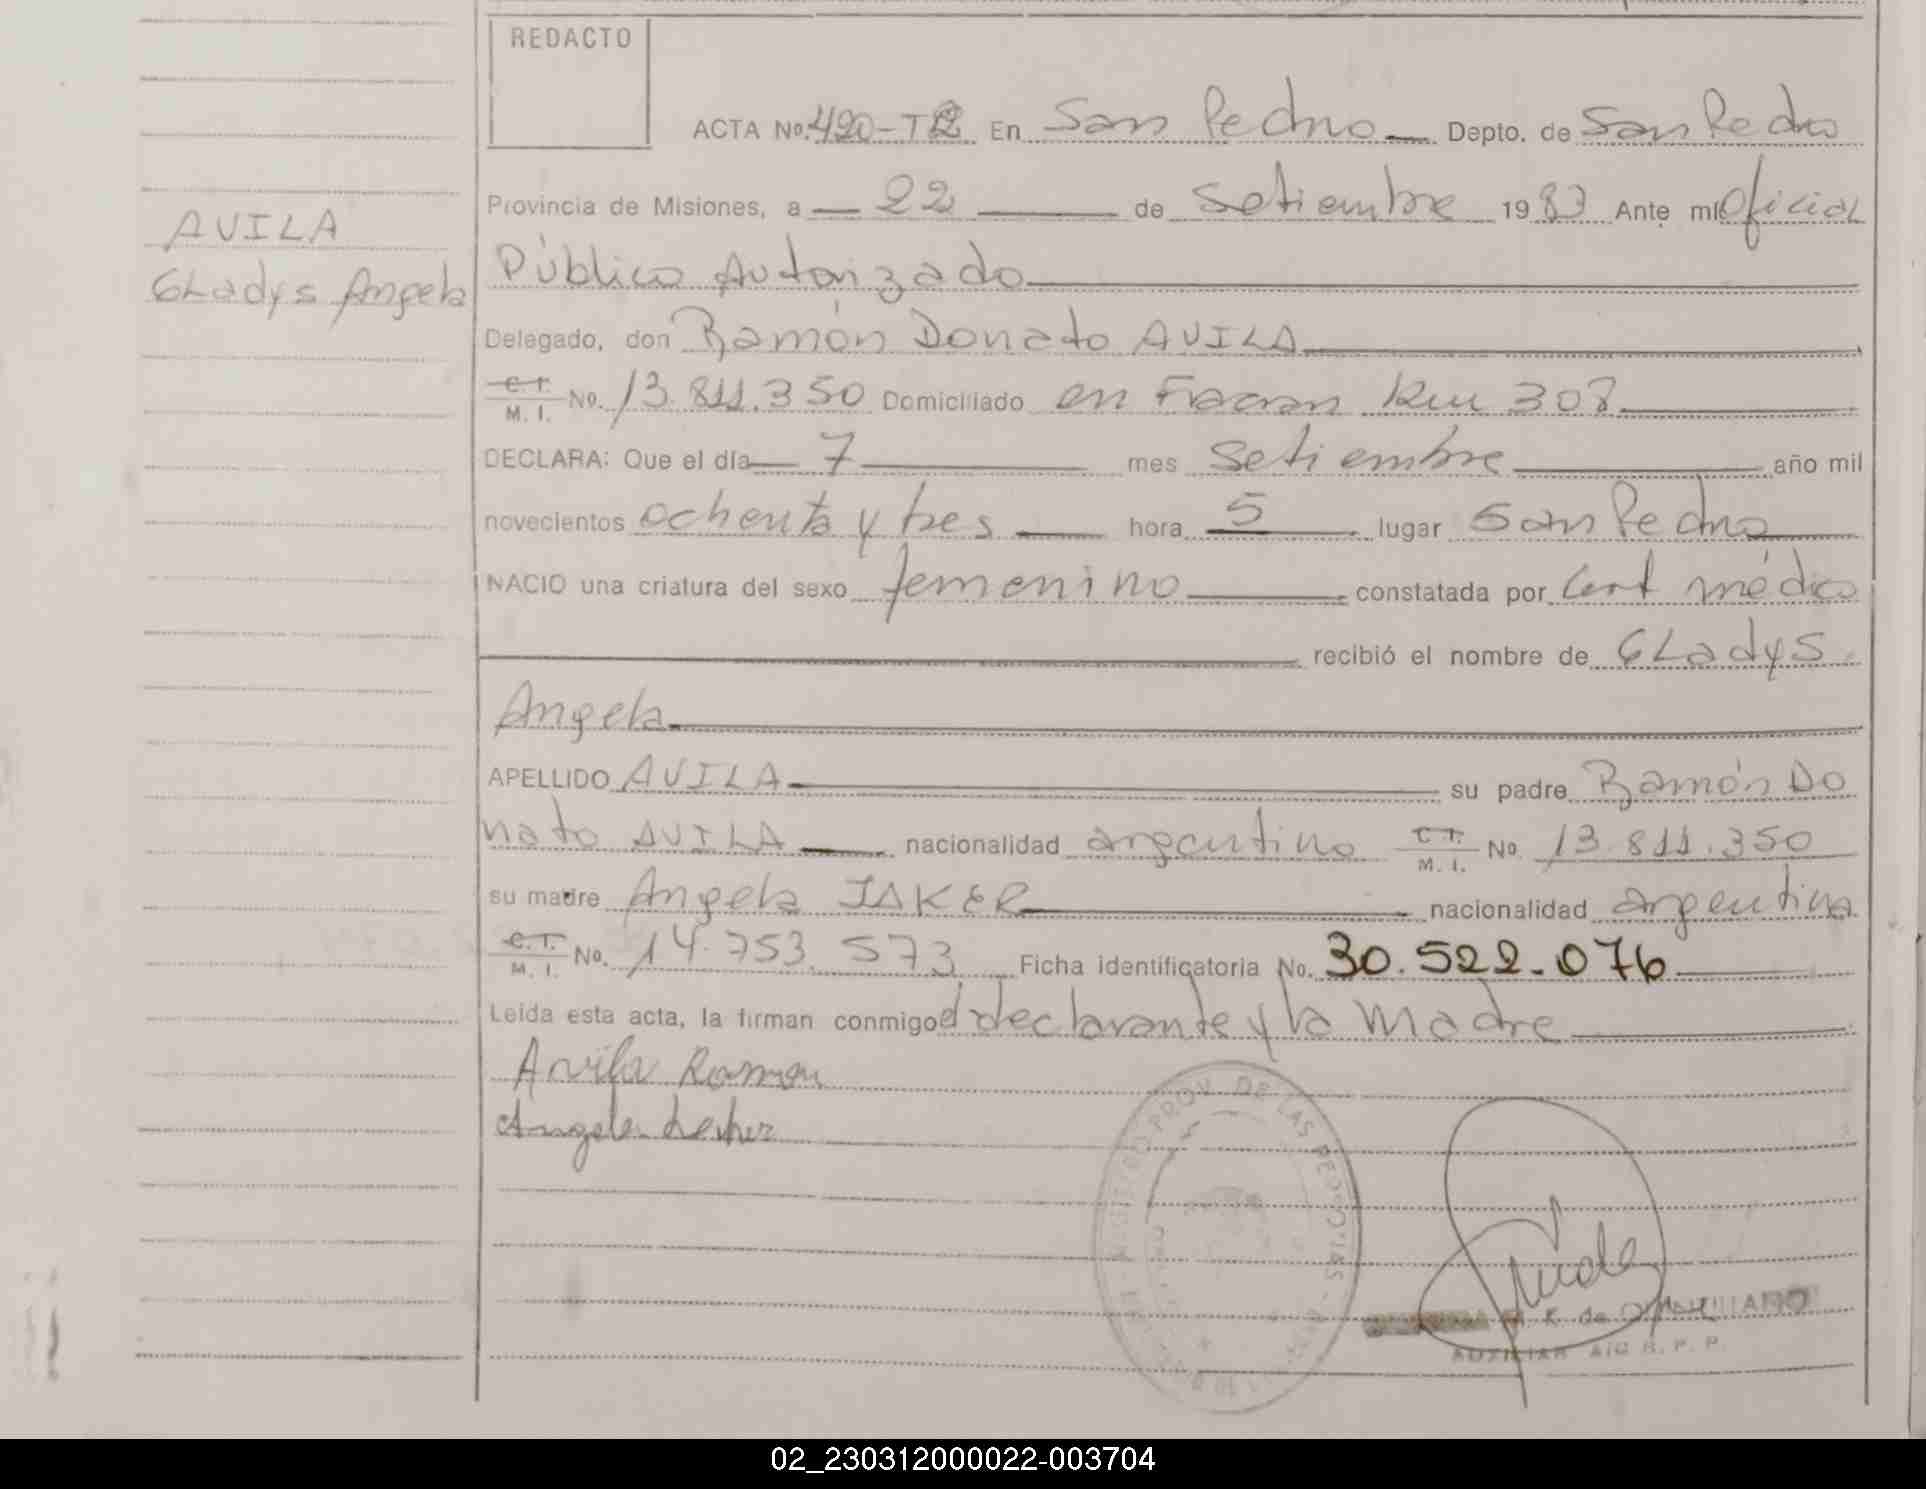 REDACTO
ACTA No. 420-T2 En San Pedro Depto. de San Pedro
Provincia de Misiones, a 22 de Setiembre 1983 Ante mi Oficial
AVILA
Público Autorizado
Gladys Angela
Delegado, don Ramón Donato AVILA
C.I. M. I. No. 13.811.350 Domiciliado en Fracran Km 308
DECLARA: Que el día 7 mes Setiembre año mil
novecientos ochenta y tres hora 5 lugar San Pedro
NACIO una criatura del sexo femenino constatada por Cert médico
recibió el nombre de Gladys
Angela
APELLIDO AVILA su padre Ramón Do
nato AVILA nacionalidad argentino C.I. M. I. No. 13.811.350
su madre Angela IAKER nacionalidad argentina
C.I. M. I. No. 14.753.573 Ficha identificatoria No. 30.522.076
Leída esta acta, la firman conmigo el declarante y la Madre
Avila Ramon
Angela
PROV. DE LAS PERSONAS
K. de
AUXILIAR R. P. P.
02_230312000022-003704